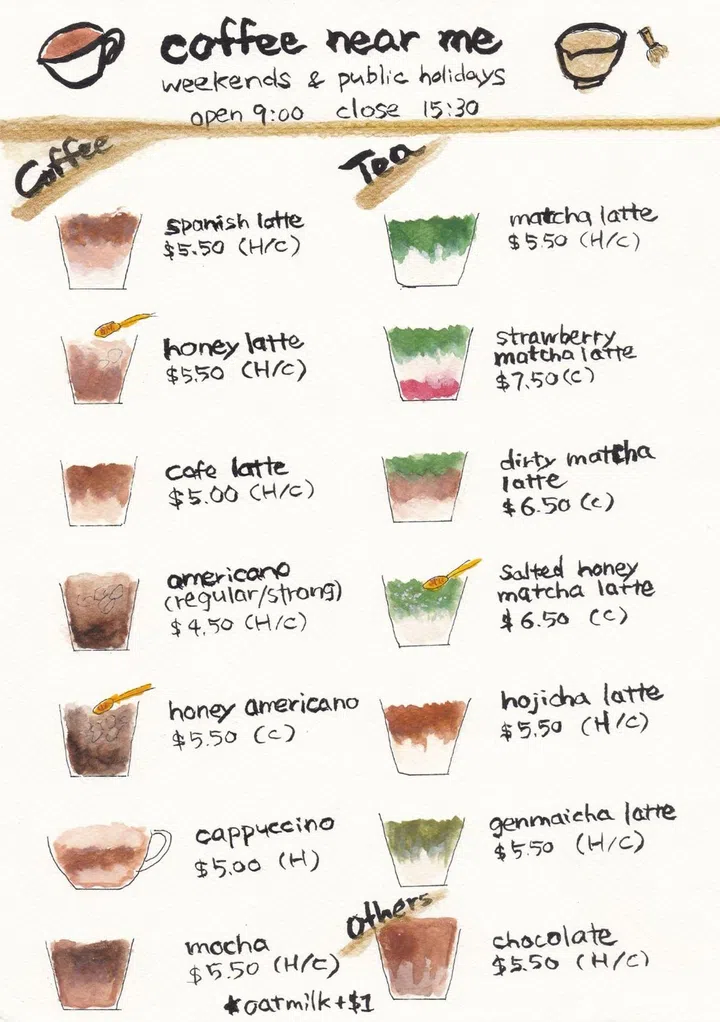 coffee near me
weekends & public holidays
open 9:00 close 15:30
Coffee
spanish latte
$5.50 (H/C)
honey latte
$5.50 (H/C)
cafe latte
$5.00 (H/C)
americano
(regular/strong)
$4.50 (H/C)
honey americano
$5.50 (C)
cappuccino
$5.00 (H)
mocha
$5.50 (H/C)
*oatmilk +$1
Tea
matcha latte
$5.50 (H/C)
strawberry
matcha latte
$7.50 (C)
dirty matcha
latte
$6.50 (C)
Salted honey
matcha latte
$6.50 (C)
hojicha latte
$5.50 (H/C)
genmaicha latte
$5.50 (H/C)
Others
chocolate
$5.50 (H/C)